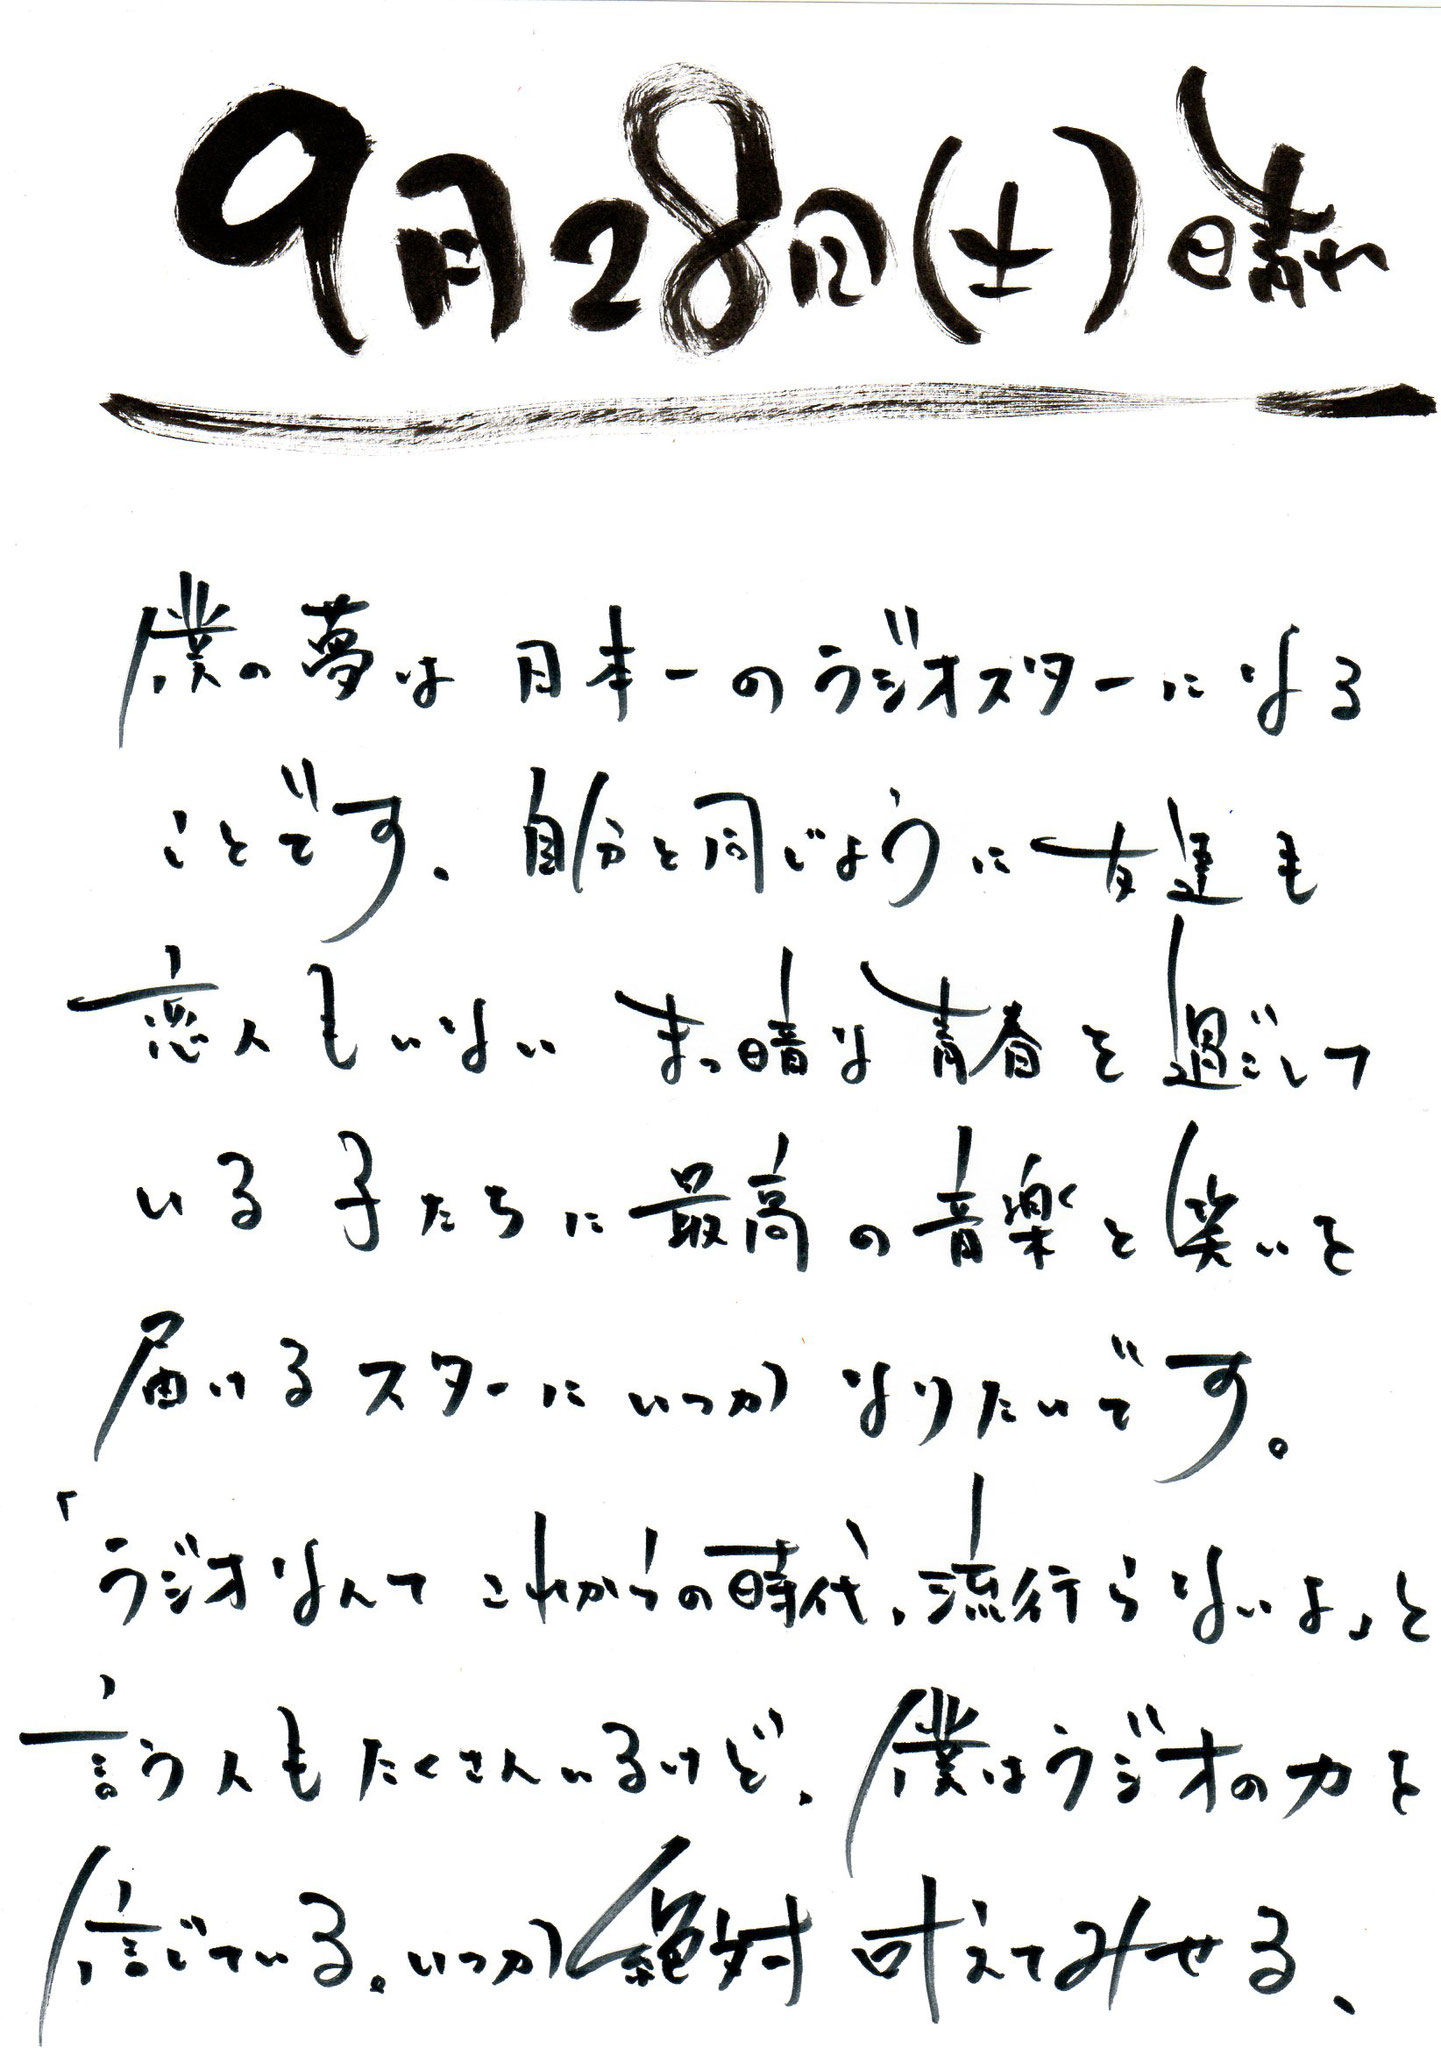 9月28日(土)晴れ
僕の夢は日本一のラジオスターになる
ことです、自分と同じように友達も
恋人もいないまっ暗な青春を過ごして
いる子たちに最高の音楽と笑いを
届けるスターにいつかなりたいです。
「ラジオなんてこれからの時代、流行らないよ」と
言う人もたくさんいるけど、僕はラジオの力を
信じている。いつか絶対叶えてみせる、